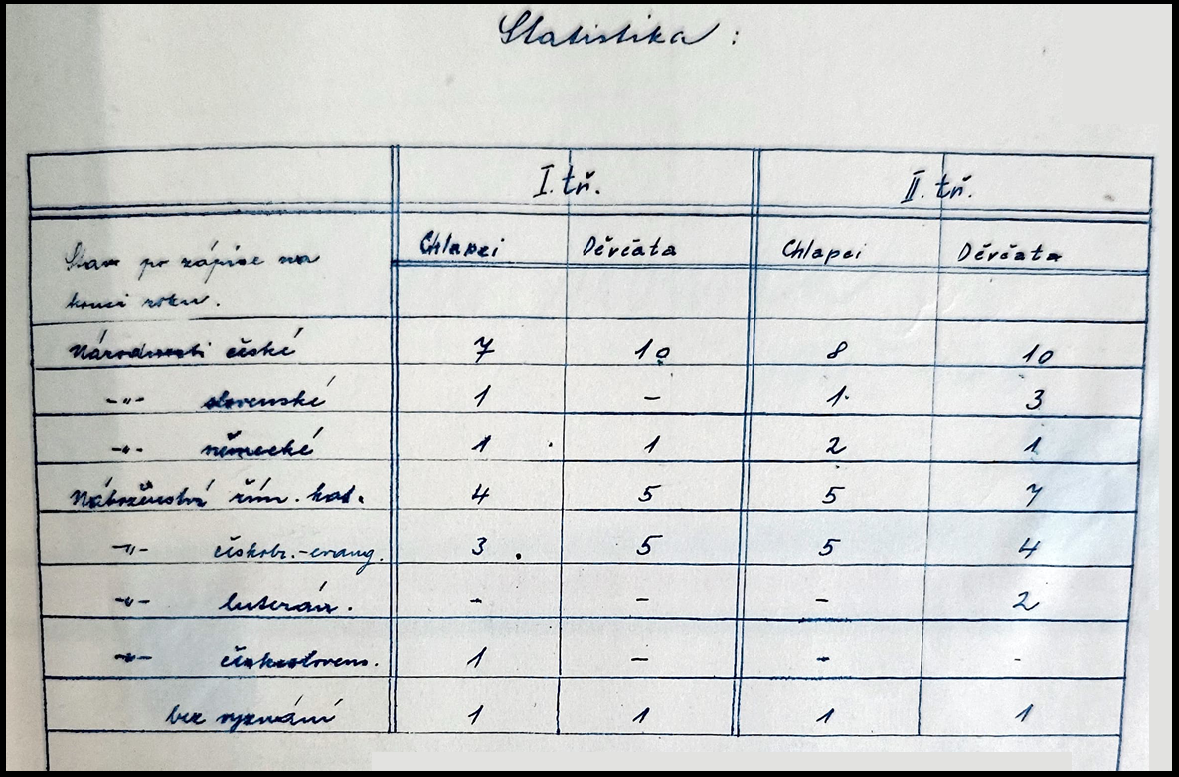 Statistika :
I. tř. II. tř.
Stav po zápise na Chlapci Děvčata Chlapci Děvčata
konci roku.
Národnosti české 7 10 8 10
-"- slovenské 1 - 1 3
-"- německé 1 1 2 1
Náboženství řím. kat. 4 5 5 7
-"- českobr.-evang. 3 5 5 4
-"- luterán. - - - 2
-"- českosloven. 1 - - -
bez vyznání 1 1 1 1